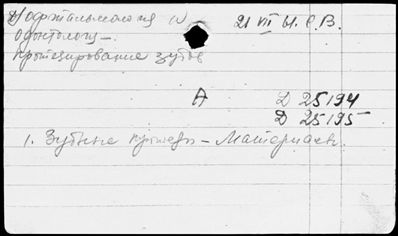 21 VII 41. Р.В.
Одонтология —.
Протезирование зубов
А Д 25194
Д 25195
1. Зубные протезы — Материалы.